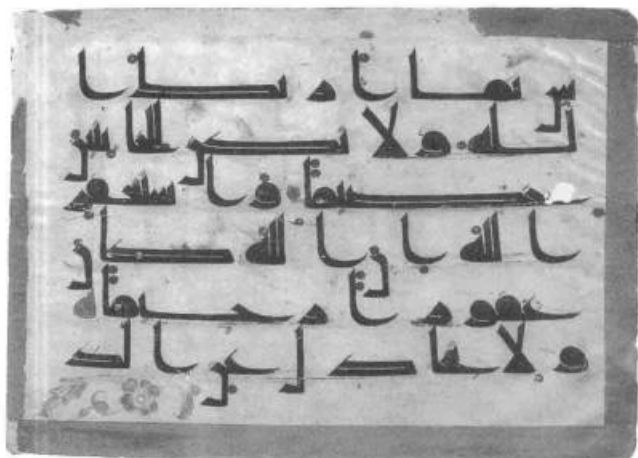 س بما اريك ا
لله ولا تكن للخائنين
خصيما واستغفر
الله ان الله كان
غفورا رحيما
ولا تجادل عن الذ